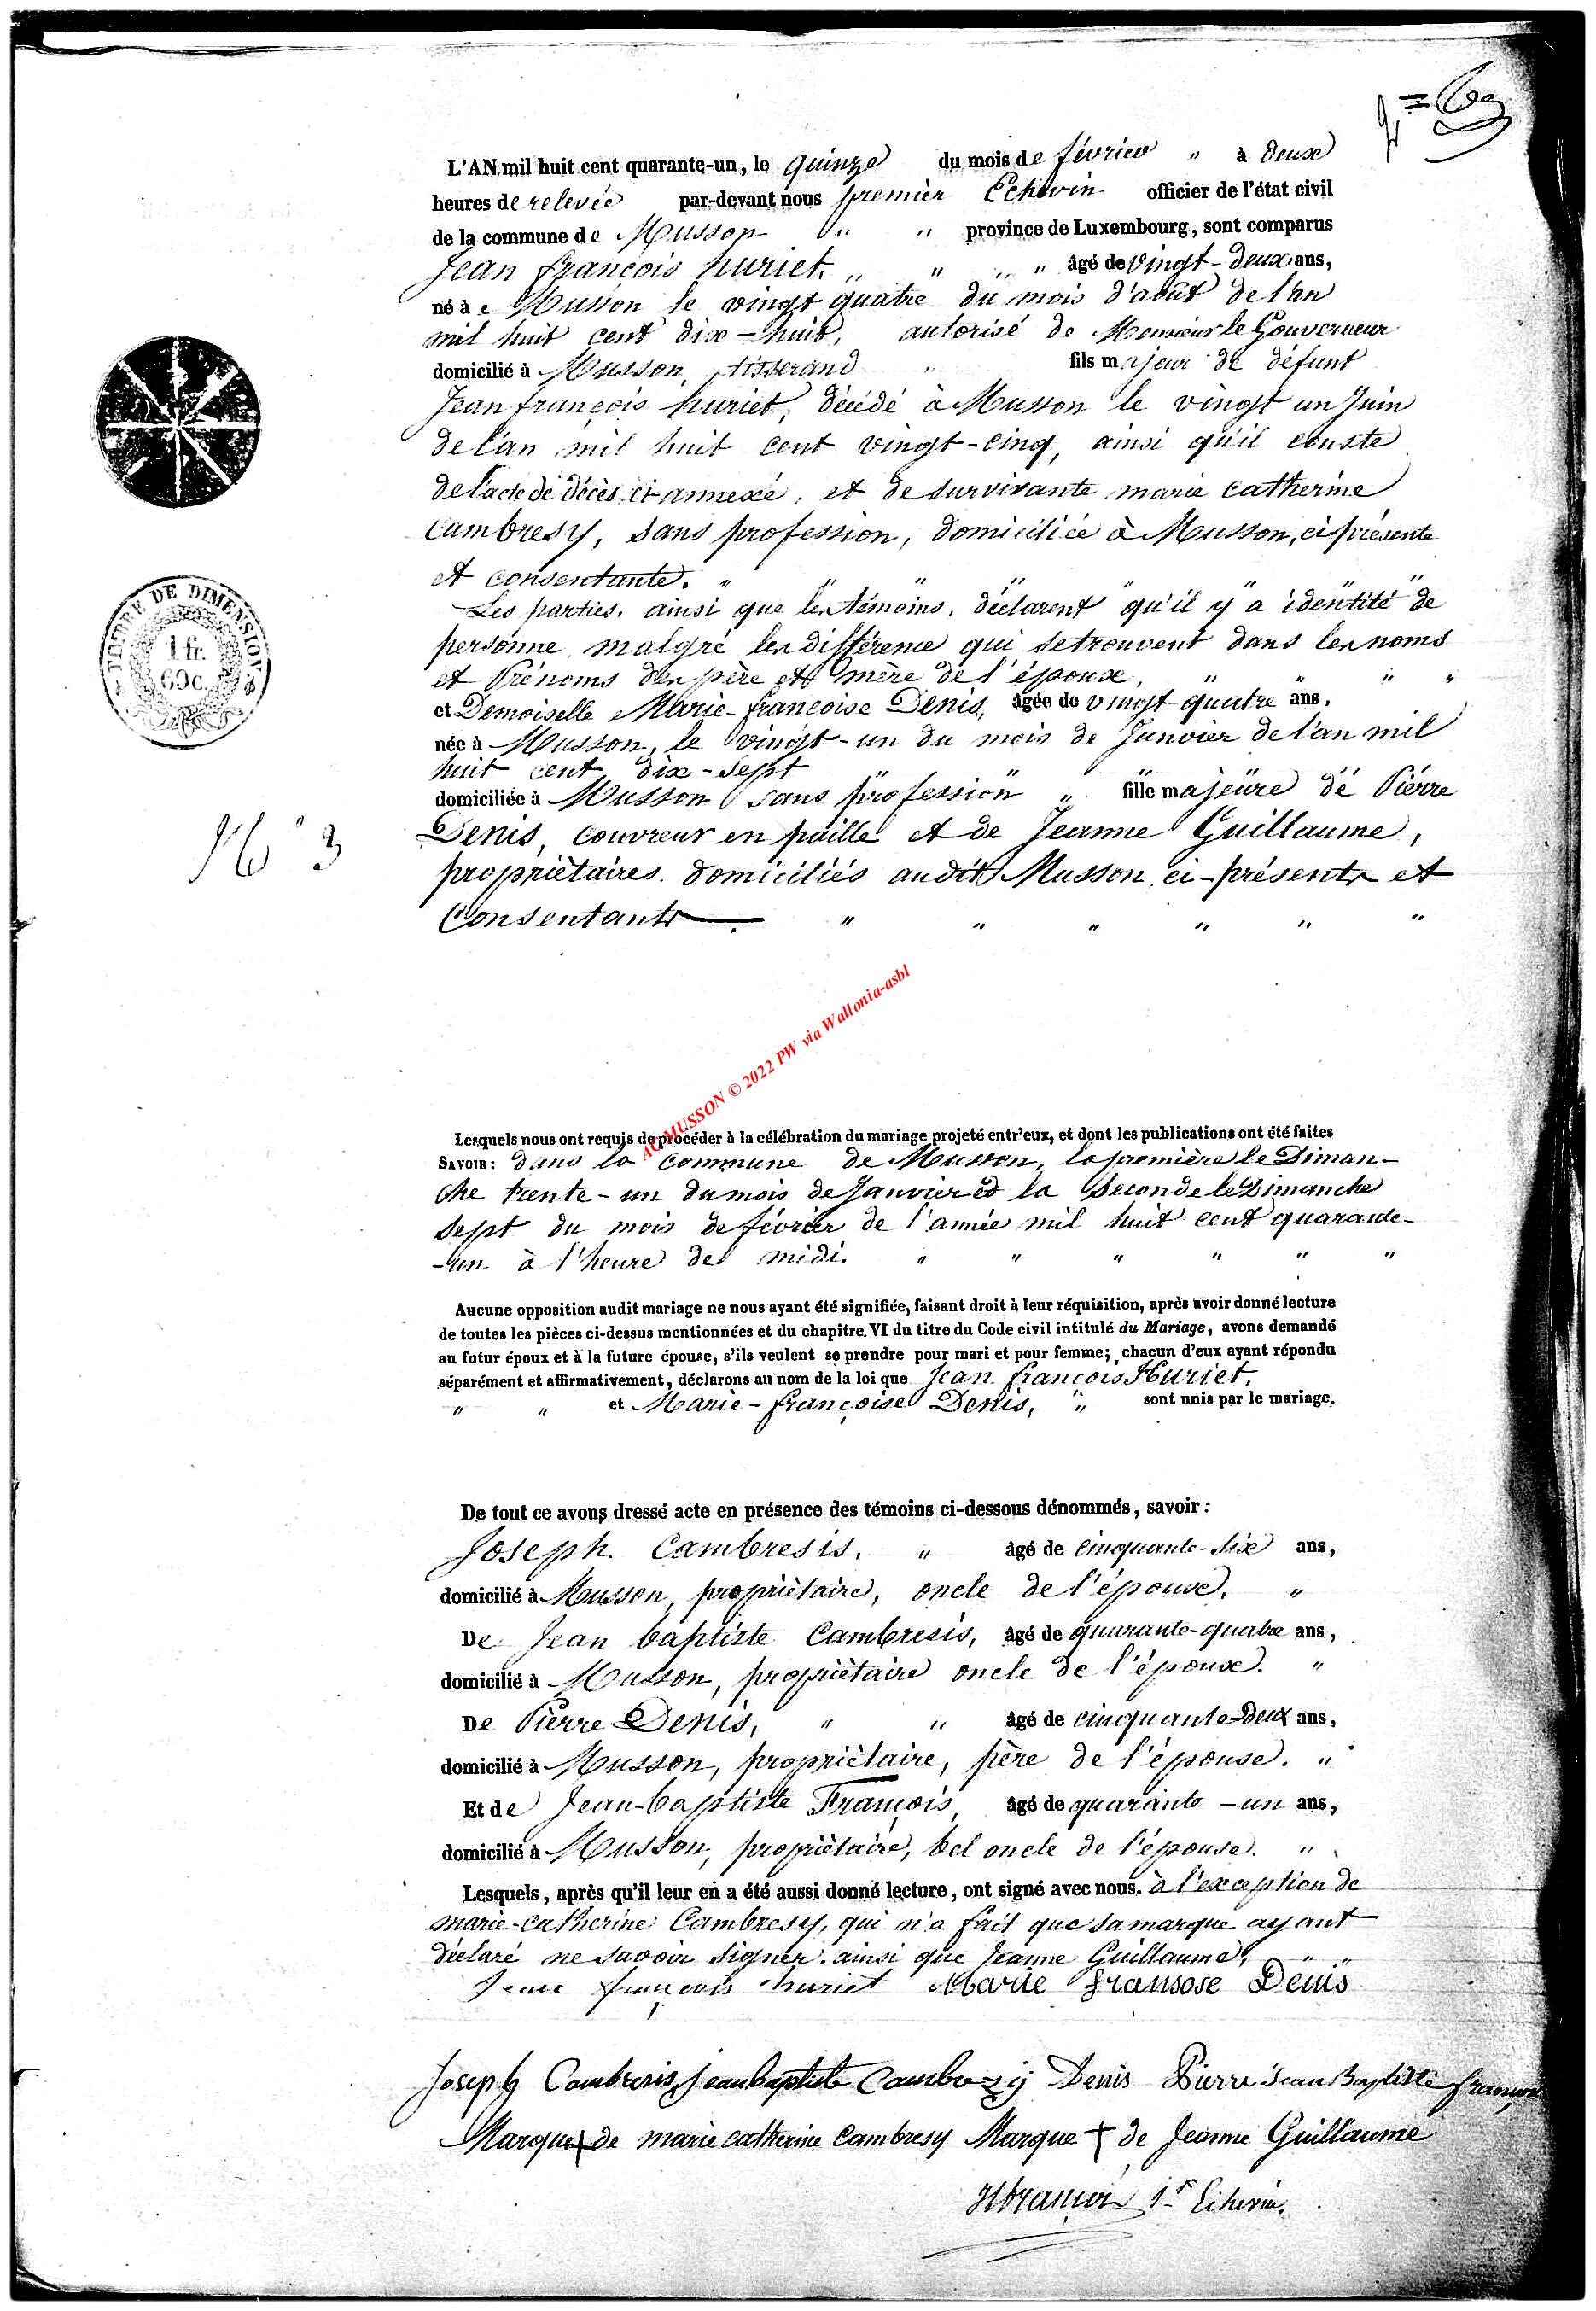 L'AN mil huit cent quarante-un, le quinze du mois de février " à deux
heures de relevée par-devant nous premier Echevin officier de l'état civil
de la commune de Musson " " province de Luxembourg, sont comparus
Jean françois huriet, " " " " âgé de vingt-deux ans,
né à Musson le vingt quatre du mois d'août de l'an
mil huit cent dix-huit, autorisé de Monsieur le Gouverneur
domicilié à Musson, tisserand " fils majeur de défunt
Jean françois huriet, décédé à Musson le vingt un Juin
de l'an mil huit cent vingt-cinq, ainsi qu'il conste
de l'acte de décès ci-annexé, et de survivante marie catherine
Cambresy, sans profession, domiciliée à Musson, ci-présente
et consentante. " " " " " " "
Les parties, ainsi que les témoins, déclarent qu'il y a identité de
personne malgré les différence qui se trouvent dans les noms
et Prénoms des père et mère de l'époux, " " " "
et Demoiselle Marie-françoise Denis, âgée de vingt quatre ans,
née à Musson, le vingt-un du mois de Janvier de l'an mil
huit cent dix-sept
domiciliée à Musson sans profession " fille majeure de Pierre
Denis, couvreur en paille et de Jeanne Guillaume,
propriètaires domiciliés audit Musson, ci-présents et
Consentants " " " " " "
TIMBRE DE DIMENSION
1 fr.
60c.
N° 3
AC MUSSON © 2022 PW via Wallonia-asbl
Lesquels nous ont requis de procéder à la célébration du mariage projeté entr'eux, et dont les publications ont été faites
SAVOIR: dans la commune de Musson, la première le Diman-
che trente-un du mois de Janvier et la seconde le Dimanche
sept du mois de février de l'année mil huit cent quarante-
-un à l'heure de midi. " " " " " "
Aucune opposition audit mariage ne nous ayant été signifiée, faisant droit à leur réquisition, après avoir donné lecture
de toutes les pièces ci-dessus mentionnées et du chapitre VI du titre du Code civil intitulé du Mariage, avons demandé
au futur époux et à la future épouse, s'ils veulent se prendre pour mari et pour femme; chacun d'eux ayant répondu
séparément et affirmativement, déclarons au nom de la loi que Jean françois Huriet,
" " et Marie-françoise Denis, " sont unis par le mariage.
De tout ce avons dressé acte en présence des témoins ci-dessous dénommés, savoir:
Joseph Cambresis, " âgé de cinquante-six ans,
domicilié à Musson, propriètaire, oncle de l'épouse, "
De Jean baptiste Cambresis, âgé de quarante-quatre ans,
domicilié à Musson, propriètaire oncle de l'épouse. "
De Pierre Denis, " " âgé de cinquante-deux ans,
domicilié à Musson, propriètaire, père de l'épouse. "
Et de Jean-baptiste François, âgé de quarante-un ans,
domicilié à Musson, propriètaire, bel oncle de l'épouse. "
Lesquels, après qu'il leur en a été aussi donné lecture, ont signé avec nous. à l'exception de
marie-catherine Cambresy, qui n'a fait que sa marque ayant
déclaré ne savoir signer, ainsi que Jeanne Guillaume, " "
Jean françois huriet Marie fransose Denis
Joseph Cambresis Jean baptiste Cambrezy Denis Pierre Jean Baptiste françois
Marque + de marie catherine Cambresy Marque + de Jeanne Guillaume
1r Echevin.